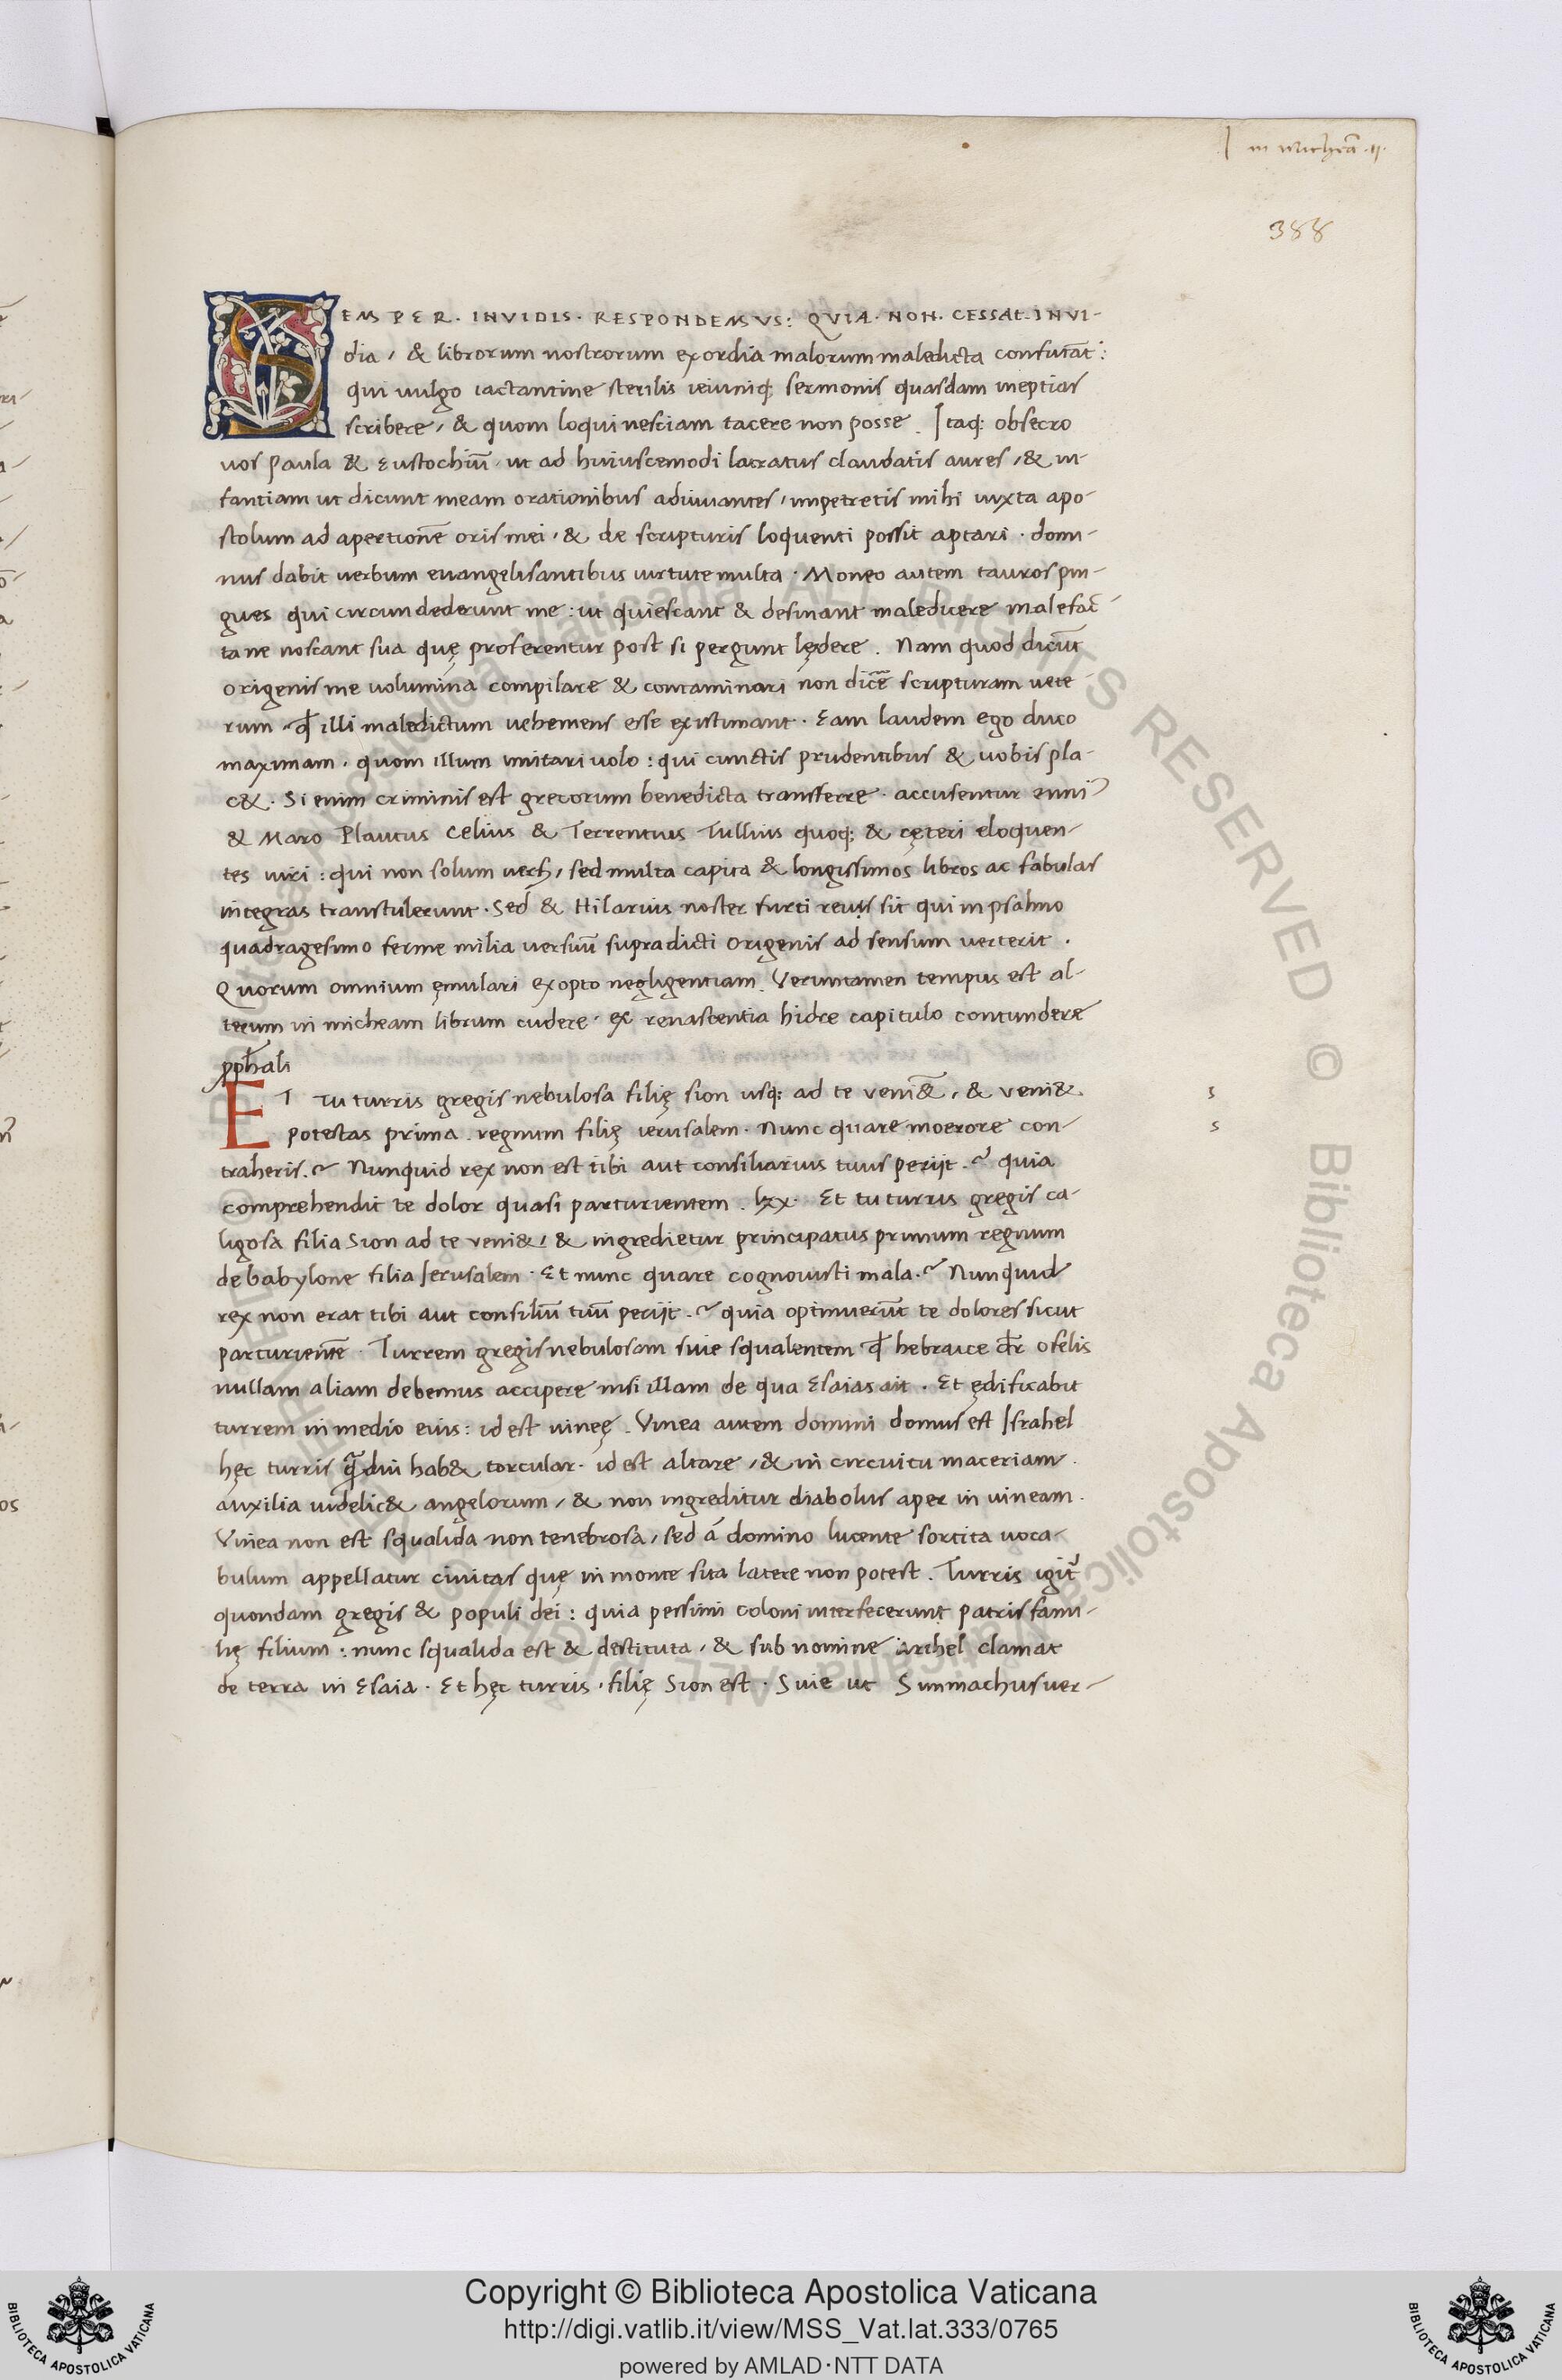 in Micheā .ij.
388
SEMPER. INVIDIS. RESPONDEMVS: QVIA. NON. CESSAt. INVI-
dia, & librorum nostrorum exordia malorum maledicta confutāt:
qui vulgo iactant me sterilis ieiuniq; sermonis quasdam ineptias
scribere, & quom loqui nesciam tacere non posse. Itaq; obsecro
vos paula & Eustochiū, ut ad huiuscemodi latratus claudatis aures, & in-
fantiam ut dicunt meam orationibus adiuuantes, impetretis mihi iuxta apo-
stolum ad apertionē oris mei, & de scripturis loquenti possit aptari. domi-
nus dabit uerbum euangelisantibus uirtute multa. Moneo autem tauros pin-
gues qui circundederunt me: ut quiescant & desinant maledicere malefac-
ta ne noscant sua quę proferentur post si pergunt lędere. Nam quod dicūt
origenis me uolumina compilare & contaminari non dicē scripturam uete-
rum. qđ illi maledictum uehemens esse existimant. Eam laudem ego duco
maximam, quom illum imitari uolo: qui cunctis prudentibus & uobis pla-
c&. Si enim criminis est grecorum benedicta transferre. accusentur enni'
& Maro Plautus Celius & Terrentius Tullius quoq; & cęteri eloquen-
tes uiri: qui non solum uers, sed multa capita & longissimos libros ac fabulas
integras transtulerunt. Sed & Hilarius noster furti reus sit qui in psalmo
quadragesimo ferme milia uersuū supradicti origenis ad sensum uerterit.
Quorum omnium ęmulari exopto negligentiam. Veruntamen tempus est al-
terum in micheam librum cudere, ex renascentia hidre capitulo contundere
pphali
ET Tu turris gregis nebulosa filię sion usq; ad te veni&, & veni&
s
potestas prima. regnum filię ierusalem. Nunc quare moerore con-
s
traheris.~ Nunquid rex non est tibi aut consiliarius tuus perijt.~ quia
comprehendit te dolor quasi parturientem. lxx. Et tu turris gregis ca-
ligosa filia Sion ad te veni&, & ingredietur principatus primum regnum
de babylone filia Ierusalem. Et nunc quare cognouisti mala.~ Nunquid
rex non erat tibi aut consiliū tuū perijt.~ quia optinuerūt te dolores sicut
parturientē. Turrem gregis nebulosam siue squalentem qđ hebraice dr̄ ofelis
nullam aliam debemus accipere nisi illam de qua Esaias ait. Et ędificabit
turrem in medio eius: id est uineę. Vinea autem domini domus est Israhel
hęc turris q̄diu hab& torcular. id est altare, & in circuitu maceriam.
auxilia uidelic& angelorum, & non ingreditur diabolus aper in uineam.
Vinea non est squalida non tenebrosa, sed á domino lucente sortita uoca-
bulum appellatur ciuitas quę in monte sita latere non potest. Turris igit~
quondam gregis & populi dei: quia pessimi coloni interfecerunt patris fami-
lię filium: nunc squalida est & destituta, & sub nomine arihel clamat
de terra in Esaia. Et hęc turris, filię Sion est. Siue ut Simmachus uer-
© Biblioteca Apostolica Vaticana ALL RIGHTS RESERVED
BIBLIOTECA APOSTOLICA VATICANA
Copyright © Biblioteca Apostolica Vaticana
http://digi.vatlib.it/view/MSS_Vat.lat.333/0765
powered by AMLAD·NTT DATA
BIBLIOTECA APOSTOLICA VATICANA